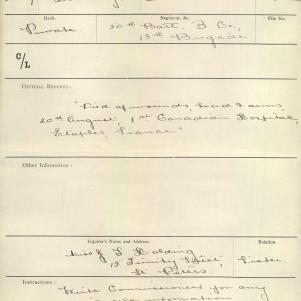 Rank.
Regiment, &c.
File No.
Private
50th Batt. B Co.,
13th Brigade
C/L
OFFICIAL REPORTS:
"Died of wounds, head & arms,
20th August, 1st Canadian Hospital,
Etaples, France"
Other Information:
Enquirer's Name and Address.
Relation.
Miss J L Golding
15 Trinity Street
St Peters
Sister
Instructions:
Write Commissioners for any
information